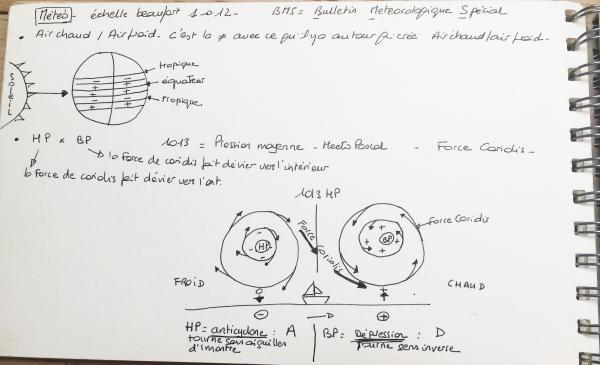 Météo - échelle beaufort 1 à 12. BMS = Bulletin Meteorologique Spécial
• Air chaud / Air froid. c'est la ≠ avec ce qu'il y a autour qui crée Air chaud/air froid.
SOLEIL
tropique
équateur
tropique
• HP x BP 1013 = Pression moyenne - Hecto Pascal - Force Coriolis -
↳ Force de coriolis fait dévier vers l'intérieur
↳ Force de coriolis fait dévier vers l'ext.
1013 HP
Force Coriolis
Force Coriolis
HP
BP
FROID
CHAUD
- → D +
HP = anticyclone : A
tourne sens aiguilles
d'1 montre
BP = Dépression : D
tourne sens inverse